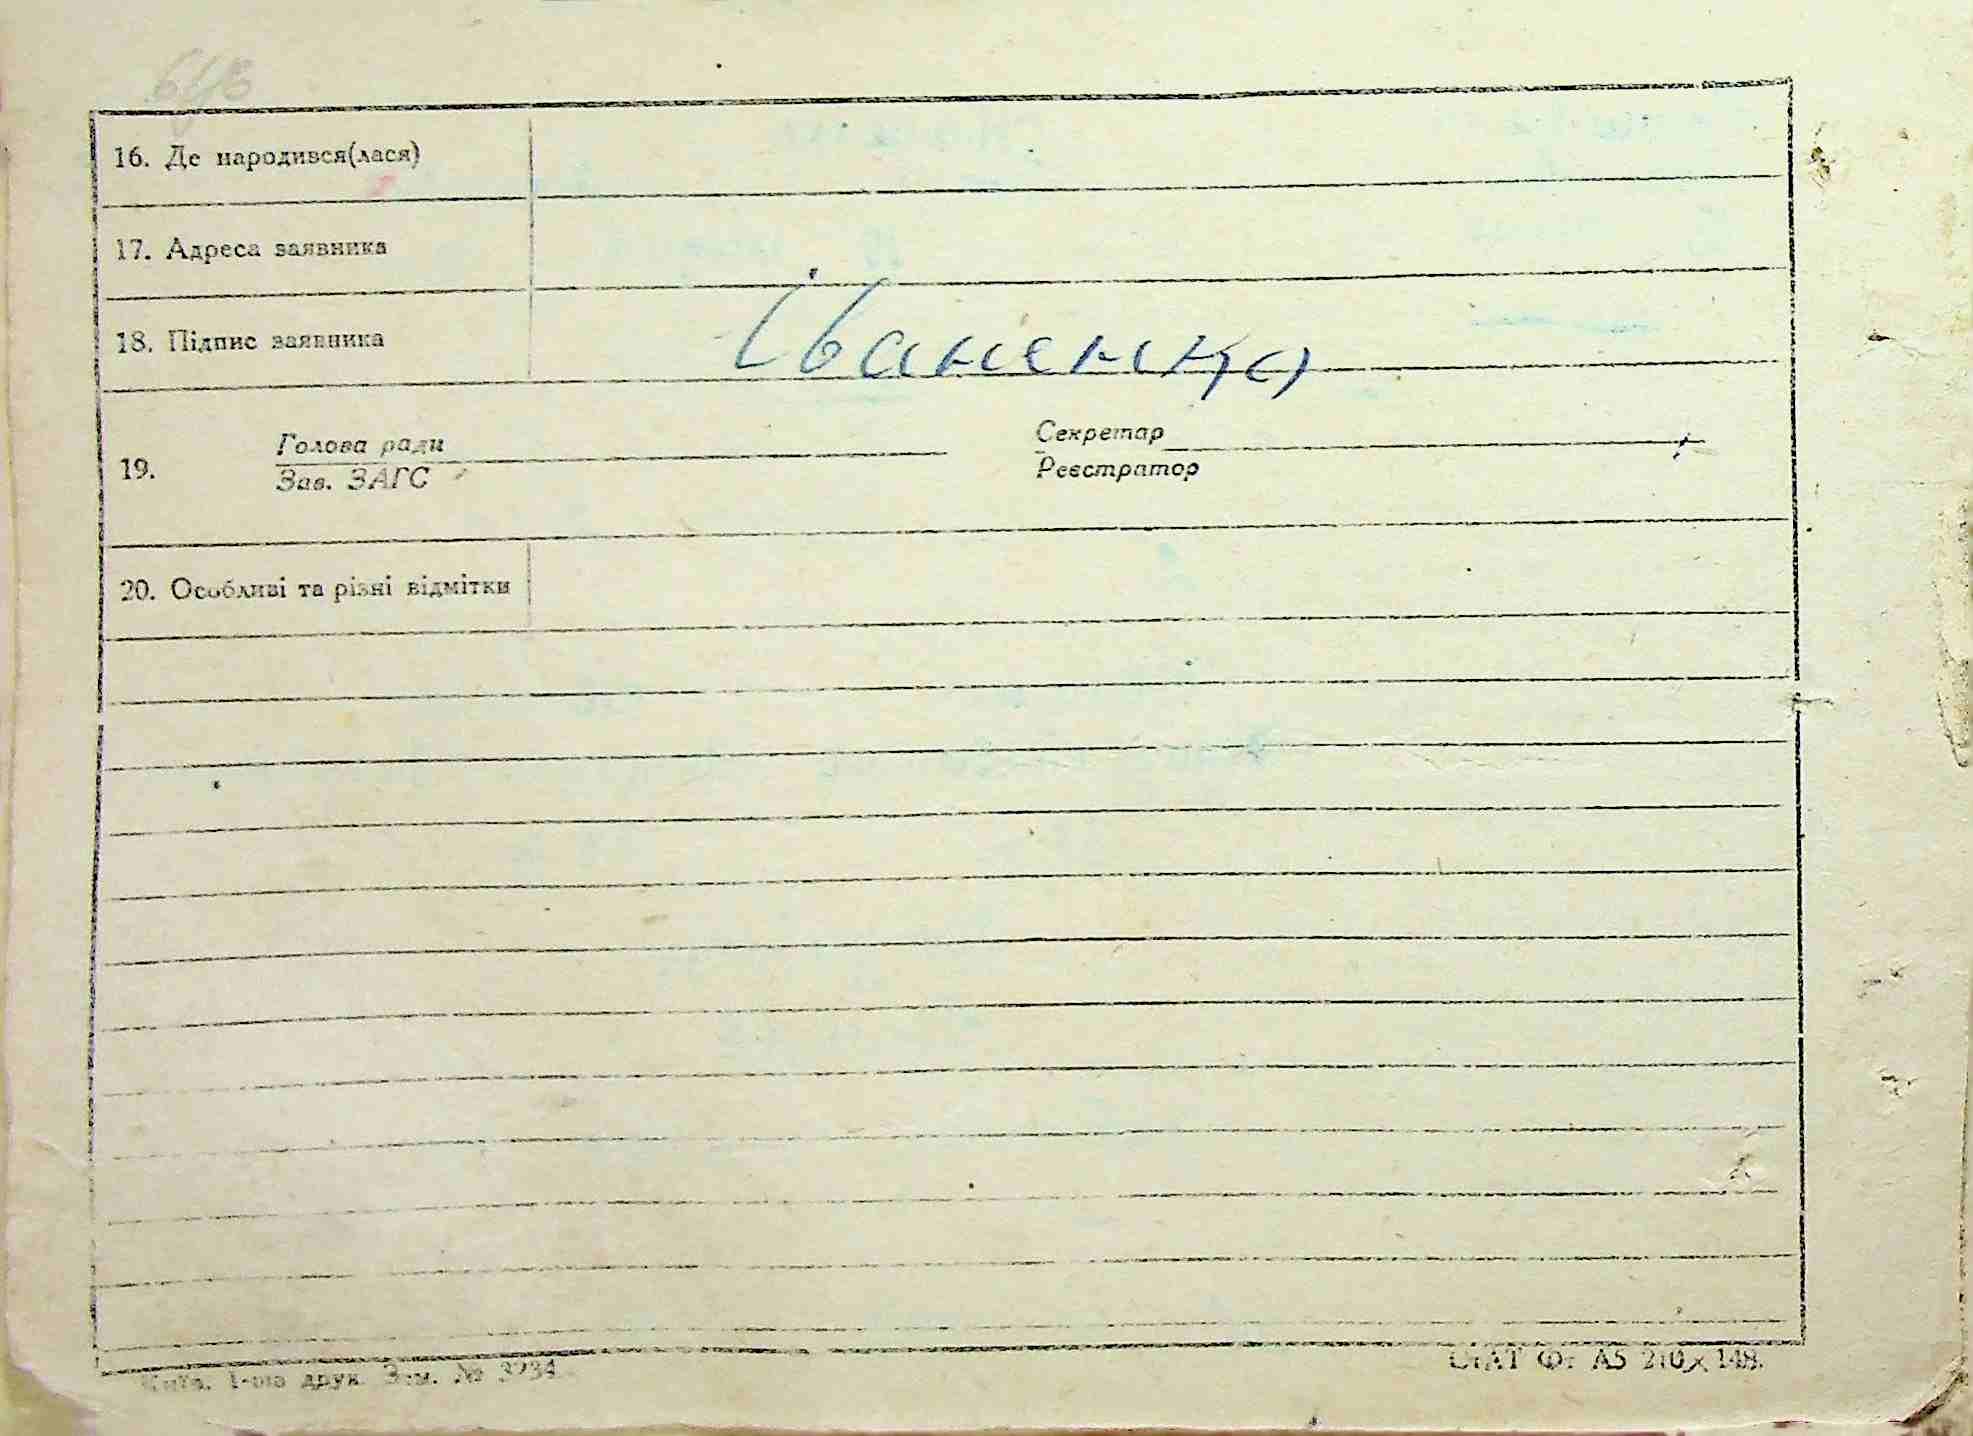 16. Де народився(лася)
17. Адреса заявника
18. Підпис заявника Іваненко
Голова ради Секретар
19.
Зав. ЗАГС Реєстратор
20. Особливі та різні відмітки
Київ. 1-ша друк. Зам. № 3234 СтАТ Ф. А5 210×148.